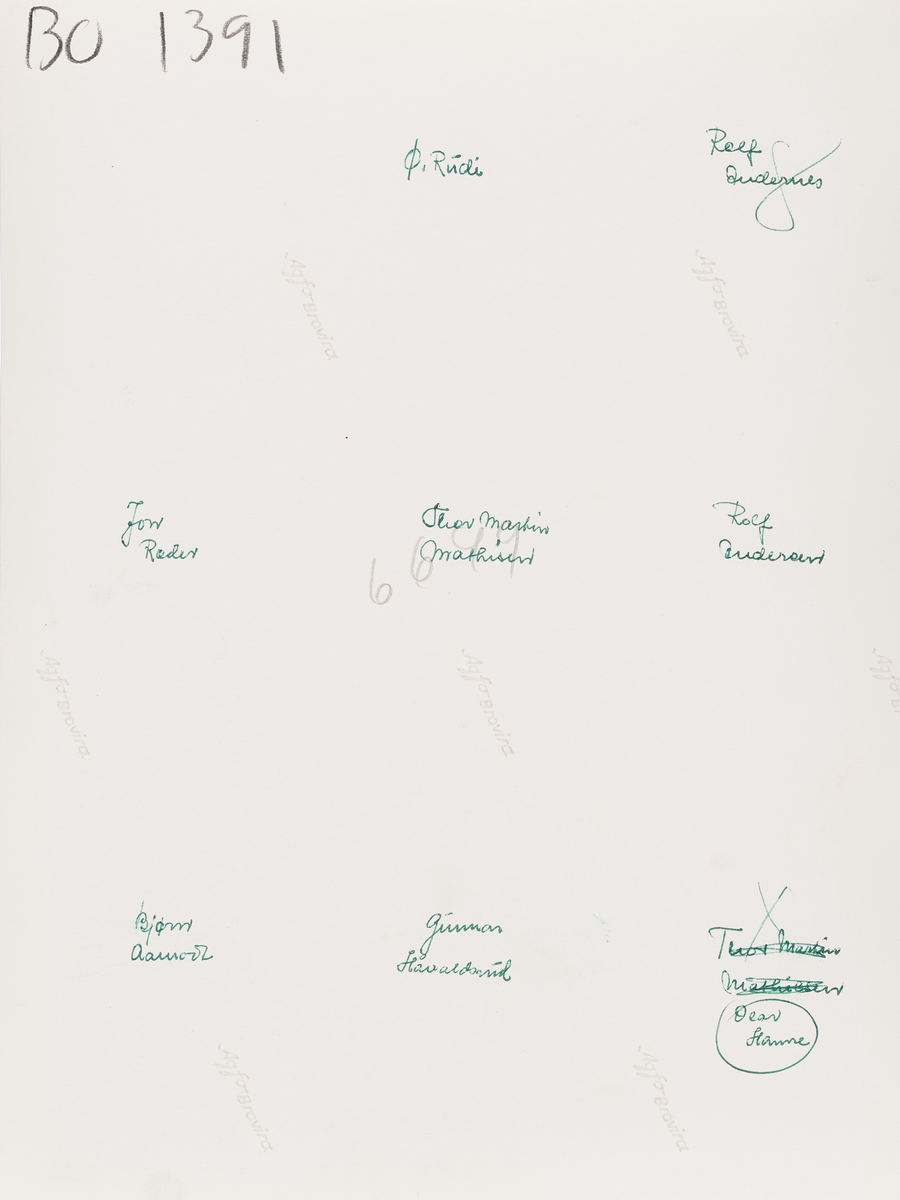 BO 1391
Ø. Rudi
Rolf
Andernes
Agfa-Brovira
Agfa-Brovira
Jon
Reder
Thor Martin
Mathisen
Rolf
Andersen
6644
Agfa-Brovira
Agfa-Brovira
Agfa-Br
Bjørn
Aamodt
Gunnar
Håvaldsrud
Thor Martin
Mathisen
Oear
Hanne
Agfa-Brovira
Agfa-Brovira